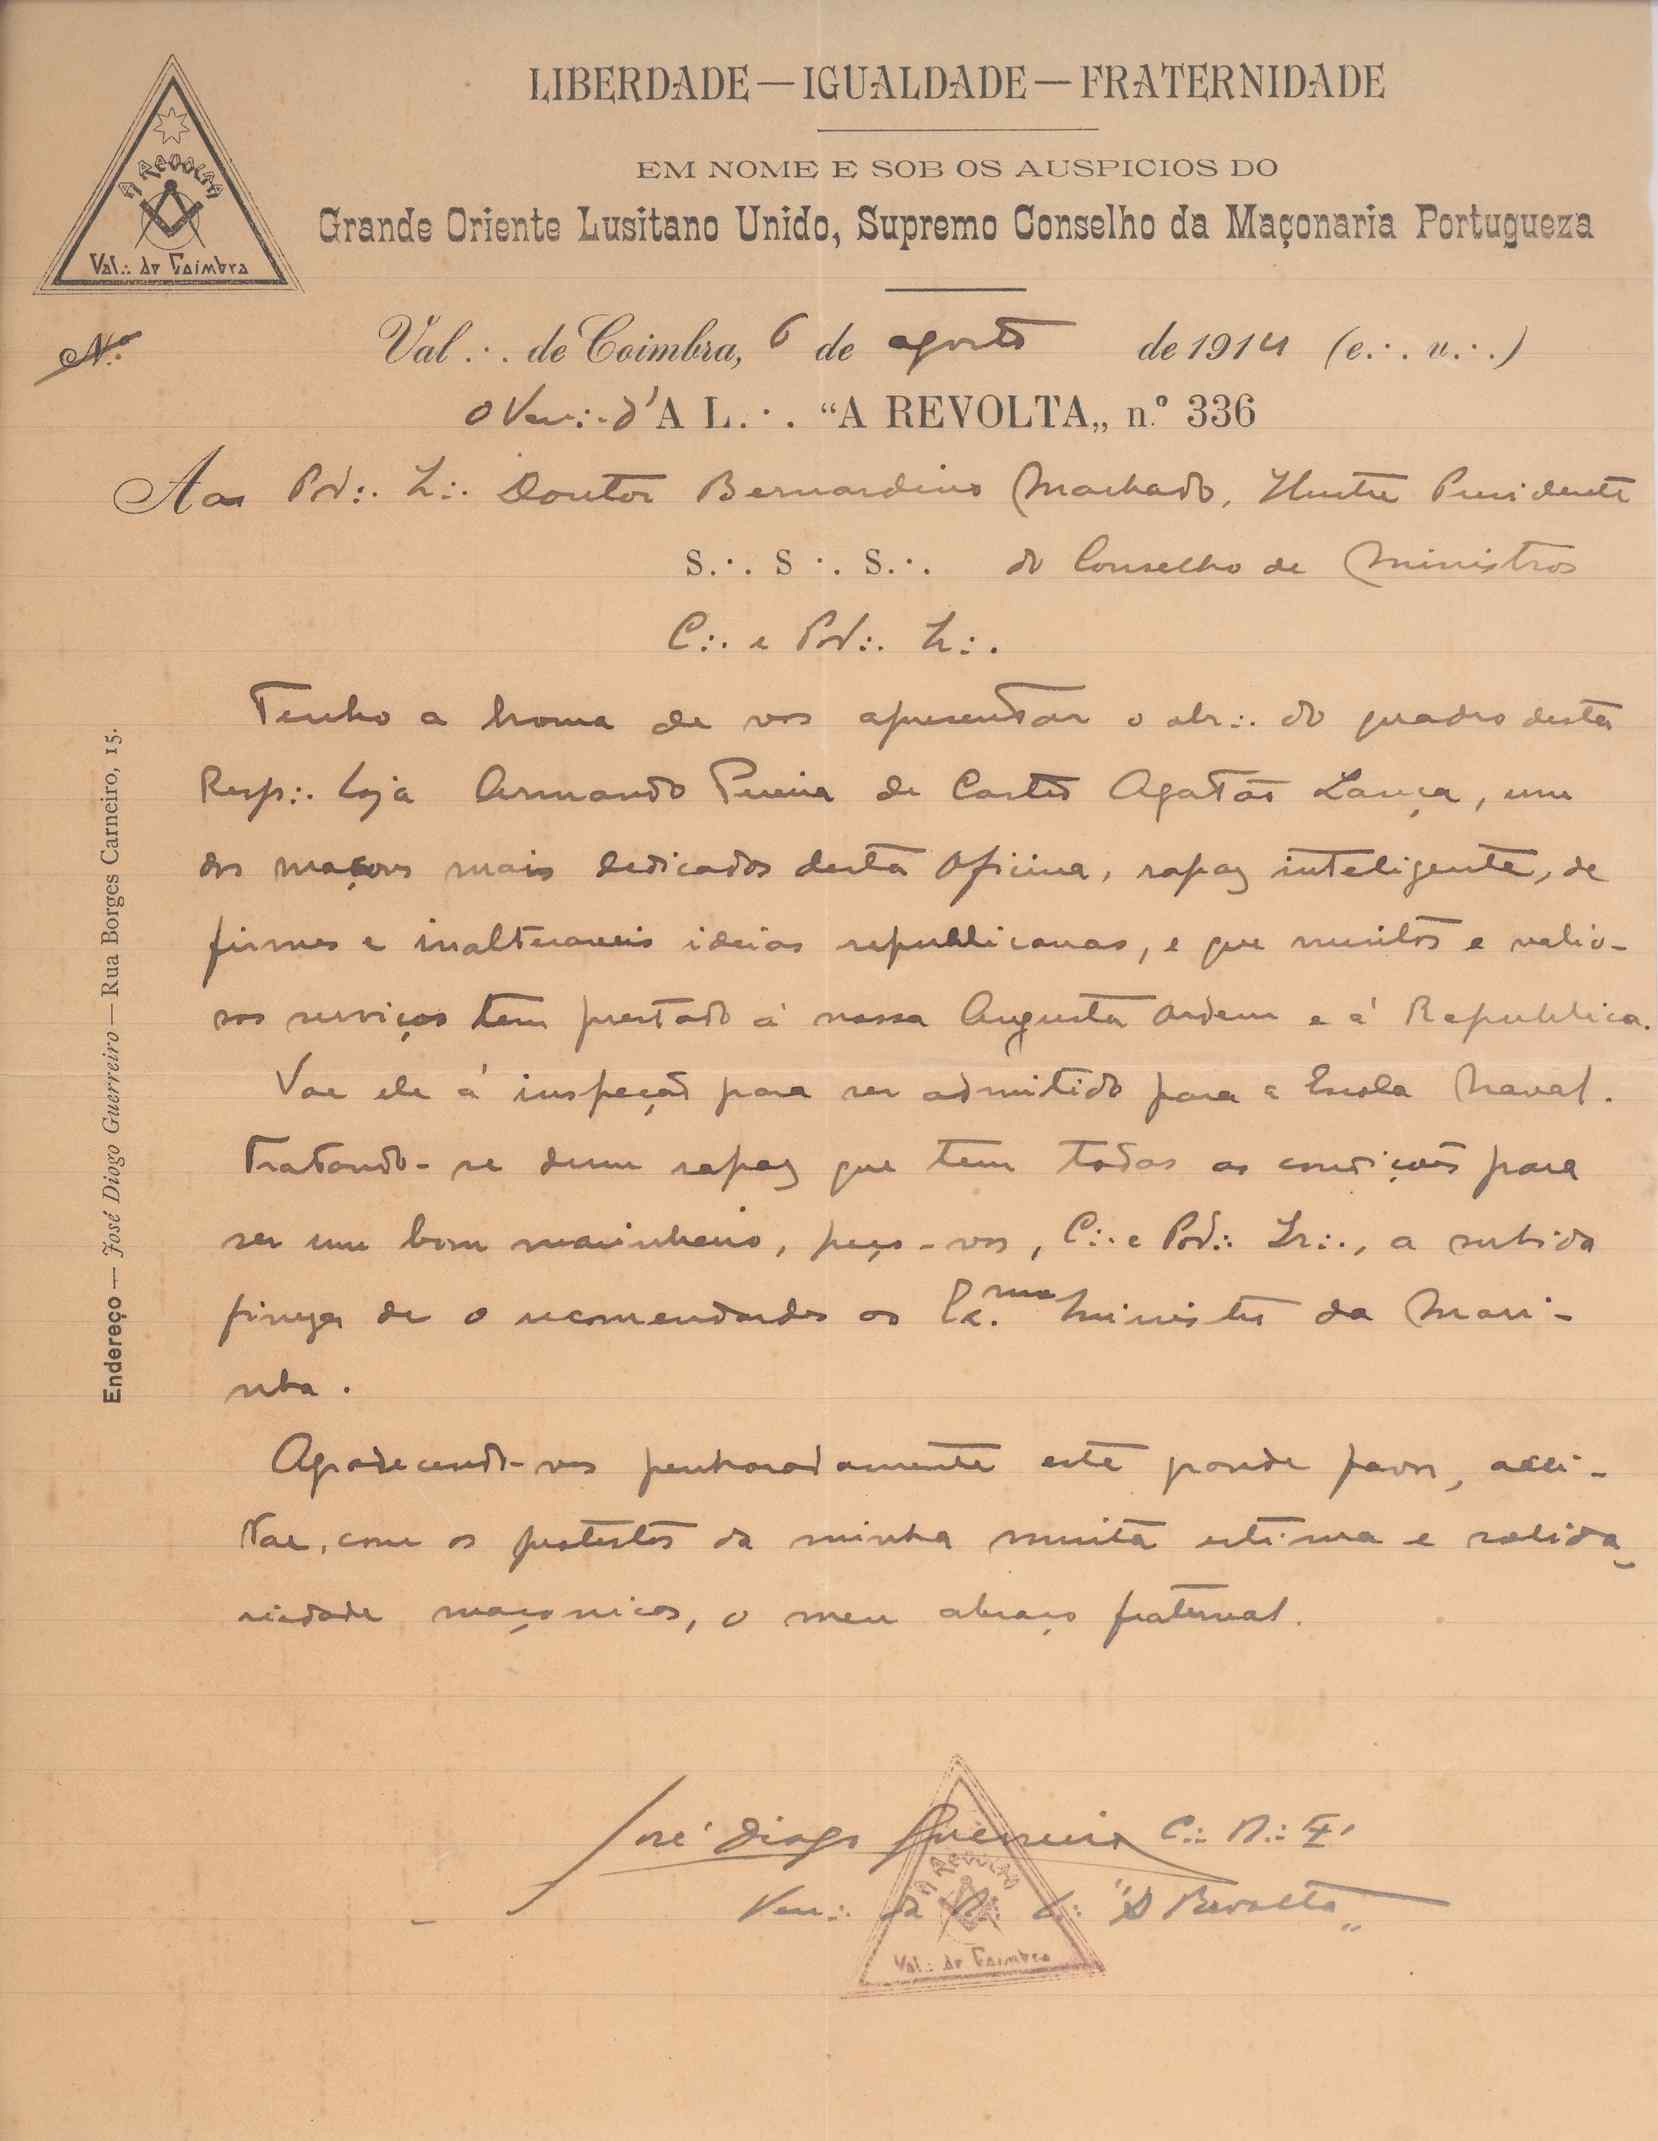 LIBERDADE — IGUALDADE — FRATERNIDADE
EM NOME E SOB OS AUSPICIOS DO
Grande Oriente Lusitano Unido, Supremo Conselho da Maçonaria Portugueza
A REVOLTA
Val∴ de Coimbra
N.º
Val∴ de Coimbra, 6 de agosto de 1914 (e∴ v∴)
O Ven∴ d'A L∴ "A REVOLTA„ n.º 336
Ao Pod∴ Ir∴ Doutor Bernardino Machado, Ilustre Presidente
S∴ S∴ S∴ do Conselho de Ministros
C∴ e Pod∴ Ir∴
Tenho a honra de vos apresentar o obr∴ do quadro desta
Resp∴ Loja Armando Pereira de Castro Agatão Lança, um
dos maçons mais dedicados desta Oficina, rapaz inteligente, de
firmes e inalteraveis ideias republicanas, e que muitos e valio-
sos serviços tem prestado á nossa Augusta Ordem e á Republica.
Vae ele á inspeção para ser admitido para a Escola Naval.
Tratando-se dum rapaz que tem todas as condições para
ser um bom marinheiro, peço-vos, C∴ e Pod∴ Ir∴, a subida
fineza de o recomendardes ao Ex.mo Ministro da Mari-
nha.
Agradecendo-vos penhoradamente este grande favor, acei-
tae, com os protestos da minha muita estima e solida-
riedade maçonicas, o meu abraço fraternal.
José Diogo Guerreiro C∴ R∴
Ven∴ da R∴ L∴ "A Revolta„
A REVOLTA
Val∴ de Coimbra
Endereço — José Diogo Guerreiro — Rua Borges Carneiro, 15.